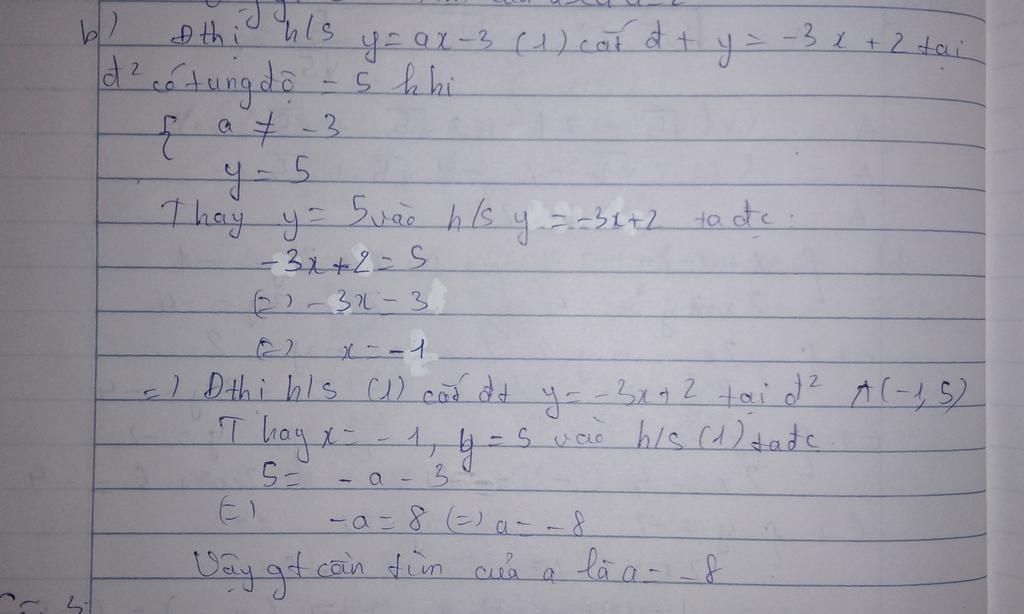 b) Đthị h/s y = ax - 3 (1) cắt đt y = -3x + 2 tại
đ² có tung độ = 5 khi
{ a ≠ -3
y = 5
Thay y = 5 vào h/s y = -3x+2 ta đc:
-3x + 2 = 5
(=) -3x = 3
(=) x = -1
=) Đthị h/s (1) cắt đt y = -3x+2 tại đ² A(-1, 5)
Thay x = -1, y = 5 vào h/s (1) ta đc
5 = -a - 3
(=) -a = 8 (=) a = -8
Vậy gt cần tìm của a là a = -8